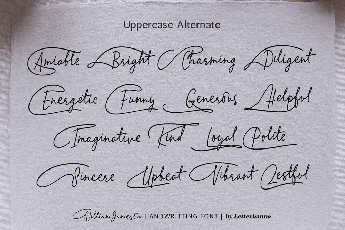 Uppercase Alternate
Amiable Bright Charming Diligent
Energetic Funny Generous Helpful
Imaginative Kind Loyal Polite
Sincere Upbeat Vibrant Zestful
WilliamJamesCo | HANDWRITING FONT | by Letterhanna